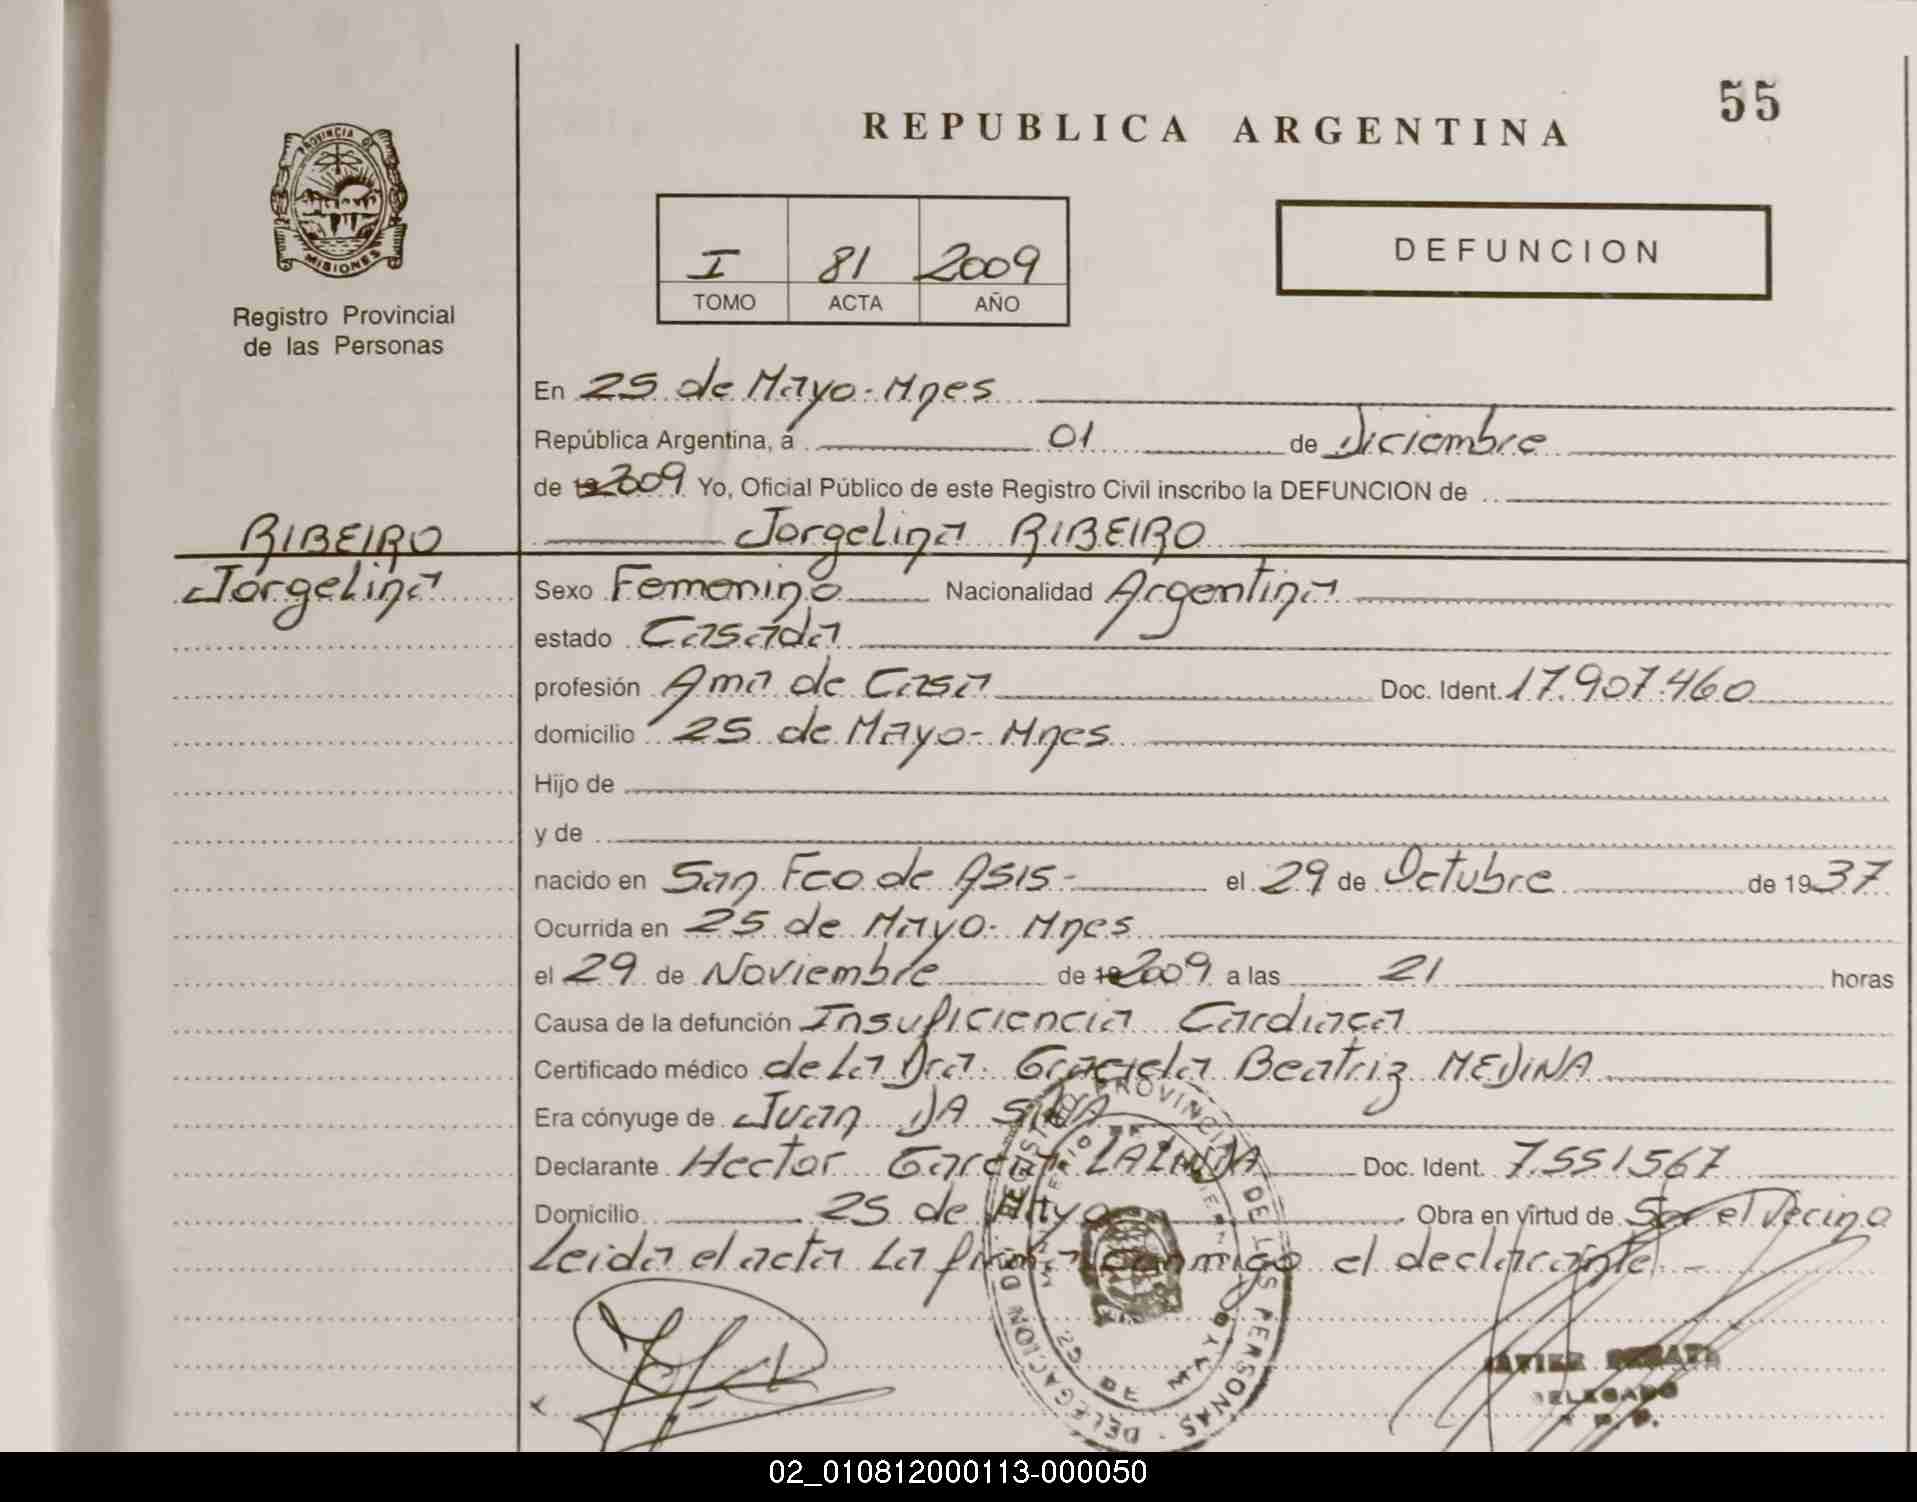 55
REPUBLICA ARGENTINA
PROVINCIA DE
MISIONES
Registro Provincial
de las Personas
I 81 2009
TOMO ACTA AÑO
DEFUNCION
En 25 de Mayo - Mnes
República Argentina, a 01 de Diciembre
de 2009 Yo, Oficial Público de este Registro Civil inscribo la DEFUNCION de
RIBEIRO
Jorgelina
Jorgelina RIBEIRO
Sexo Femenino Nacionalidad Argentina
estado Casada
profesión Ama de Casa Doc. Ident. 17.907.460
domicilio 25 de Mayo - Mnes
Hijo de
y de
nacido en San Fco de Asis - el 29 de Octubre de 1937
Ocurrida en 25 de Mayo - Mnes
el 29 de Noviembre de 2009 a las 21 horas
Causa de la defunción Insuficiencia Cardiaca
Certificado médico de La Dra. Graciela Beatriz MEDINA
Era cónyuge de Juan DA SILVA
Declarante Hector Garcia Doc. Ident. 7.551567
Domicilio 25 de Mayo Obra en virtud de Ser el Vecino
Leida el acta La firma conmigo el declarante. -
REGISTRO PROVINCIAL DE LAS PERSONAS - DELEGACION
25 DE MAYO
DELEGADO
02_010812000113-000050